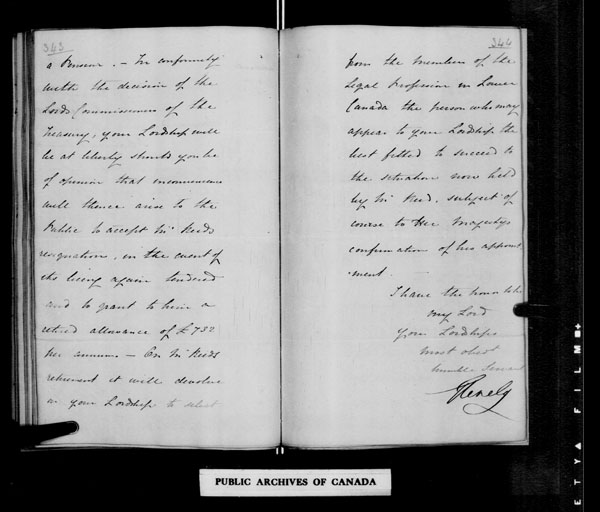 343
a Pension. – In conformity
with the decision of the
Lords Commissioners of the
Treasury, your Lordship will
be at liberty should you be
of opinion that inconvenience
will thence arise to the
Public to accept Mr Reids
resignation, in the event of
its being again tendered
and to grant to him a
retired allowance of £732
per annum – On Mr Reids
retirement it will devolve
on your Lordship to select
344
from the members of the
Legal Profession in Lower
Canada the person who may
appear to your Lordship the
best fitted to succeed to
the situation now held
by Mr Reid, subject of
course to Her Majestys
confirmation of his appoint
-ment.
I have the honor to be
my Lord
your Lordships
most obedt
humble Servant
Glenelg
PUBLIC ARCHIVES OF CANADA
ETY FILM